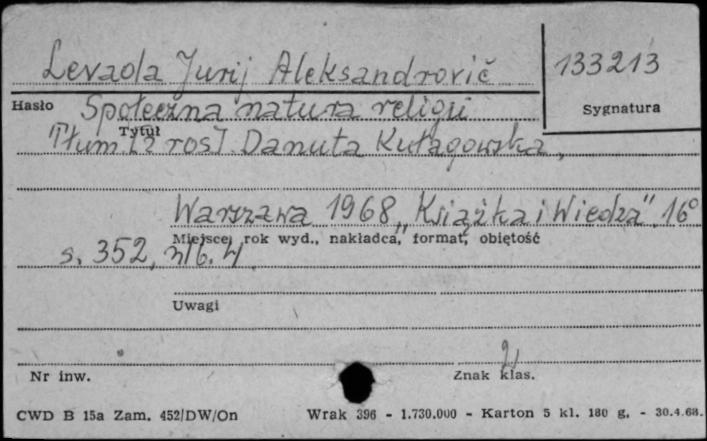 Levada Jurij Aleksandrovič 133213
Hasło Społeczna natura religii Sygnatura
Tytuł
Tłum. [z ros]. Danuta Kułagowska,
Warszawa 1968 „Książka i Wiedza". 16°
Miejsce, rok wyd., nakładca, format, objętość
s. 352,
Uwagi
Nr inw. Znak klas.
CWD B 15a Zam. 452/DW/On Wrak 396 - 1.730.000 - Karton 5 kl. 180 g. - 30.4.68.